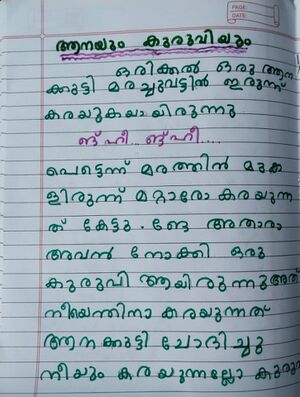 PAGE:
DATE:
ആനയും കുരുവിയും
ഒരിക്കൽ ഒരു ആന
ക്കുട്ടി മരച്ചുവട്ടിൽ ഇരുന്ന്
കരയുകയായിരുന്നു
ങ്ങ് ഹീ.. ങ്ങ് ഹീ....
പെട്ടെന്ന് മരത്തിൻ മുക
ളിരുന്ന് മറ്റാരോ കരയുന്ന
ത് കേട്ടു. ങ്ങേ അതാരാ
അവൻ നോക്കി ഒരു
കുരുവി ആയിരുന്നു അത്
നീയെന്തിനാ കരയുന്നത്
ആനക്കുട്ടി ചോദിച്ചു
നീയും കരയുന്നല്ലോ